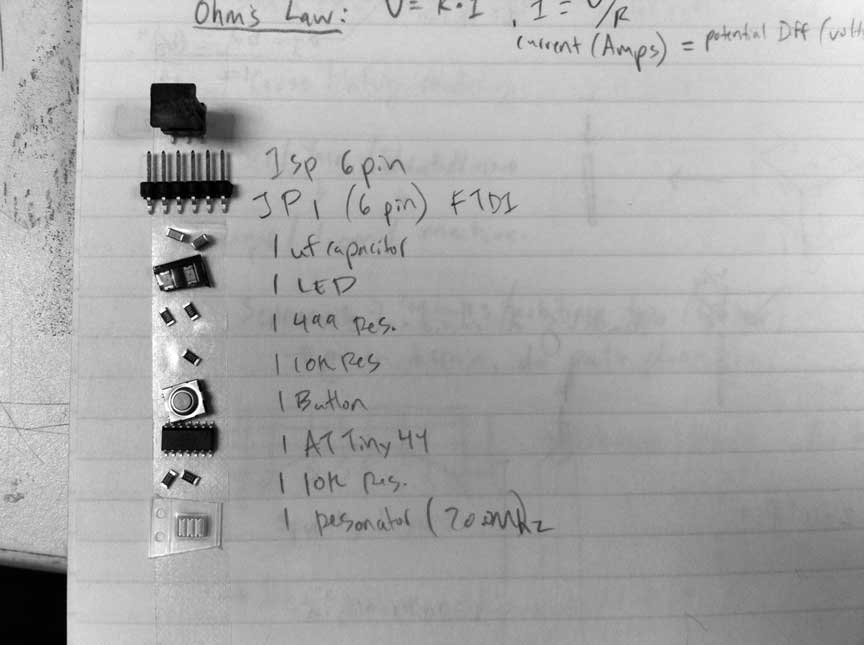 Ohm's Law: V = R · I , I = V/R
current (Amps) = potential Diff (volt
Isp 6 pin
JP1 (6 pin) FTDI
1 uf capacitor
1 LED
1 499 Res.
1 10K Res
1 Button
1 ATTiny 44
1 10K Res.
1 Resonator (20.0MHz